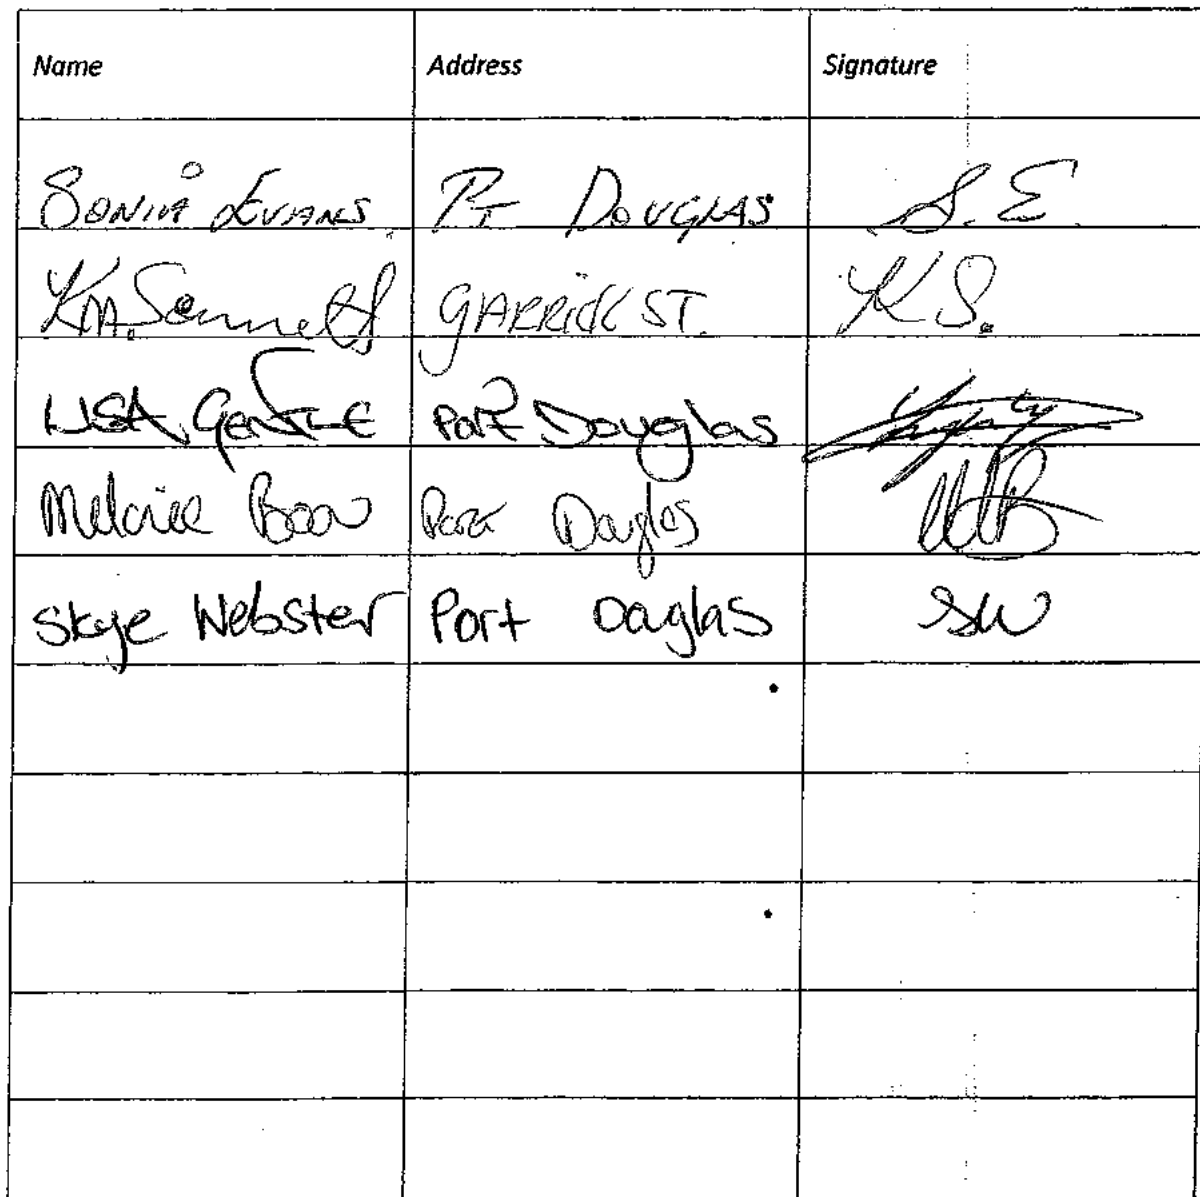 Name Address Signature
SONIA EVANS PT DOUGLAS S.E.
K.M. GARRICK ST. K S.
LISA GENTLE Port Douglas
Melanie Port Douglas MB
Skye Webster Port Douglas SW